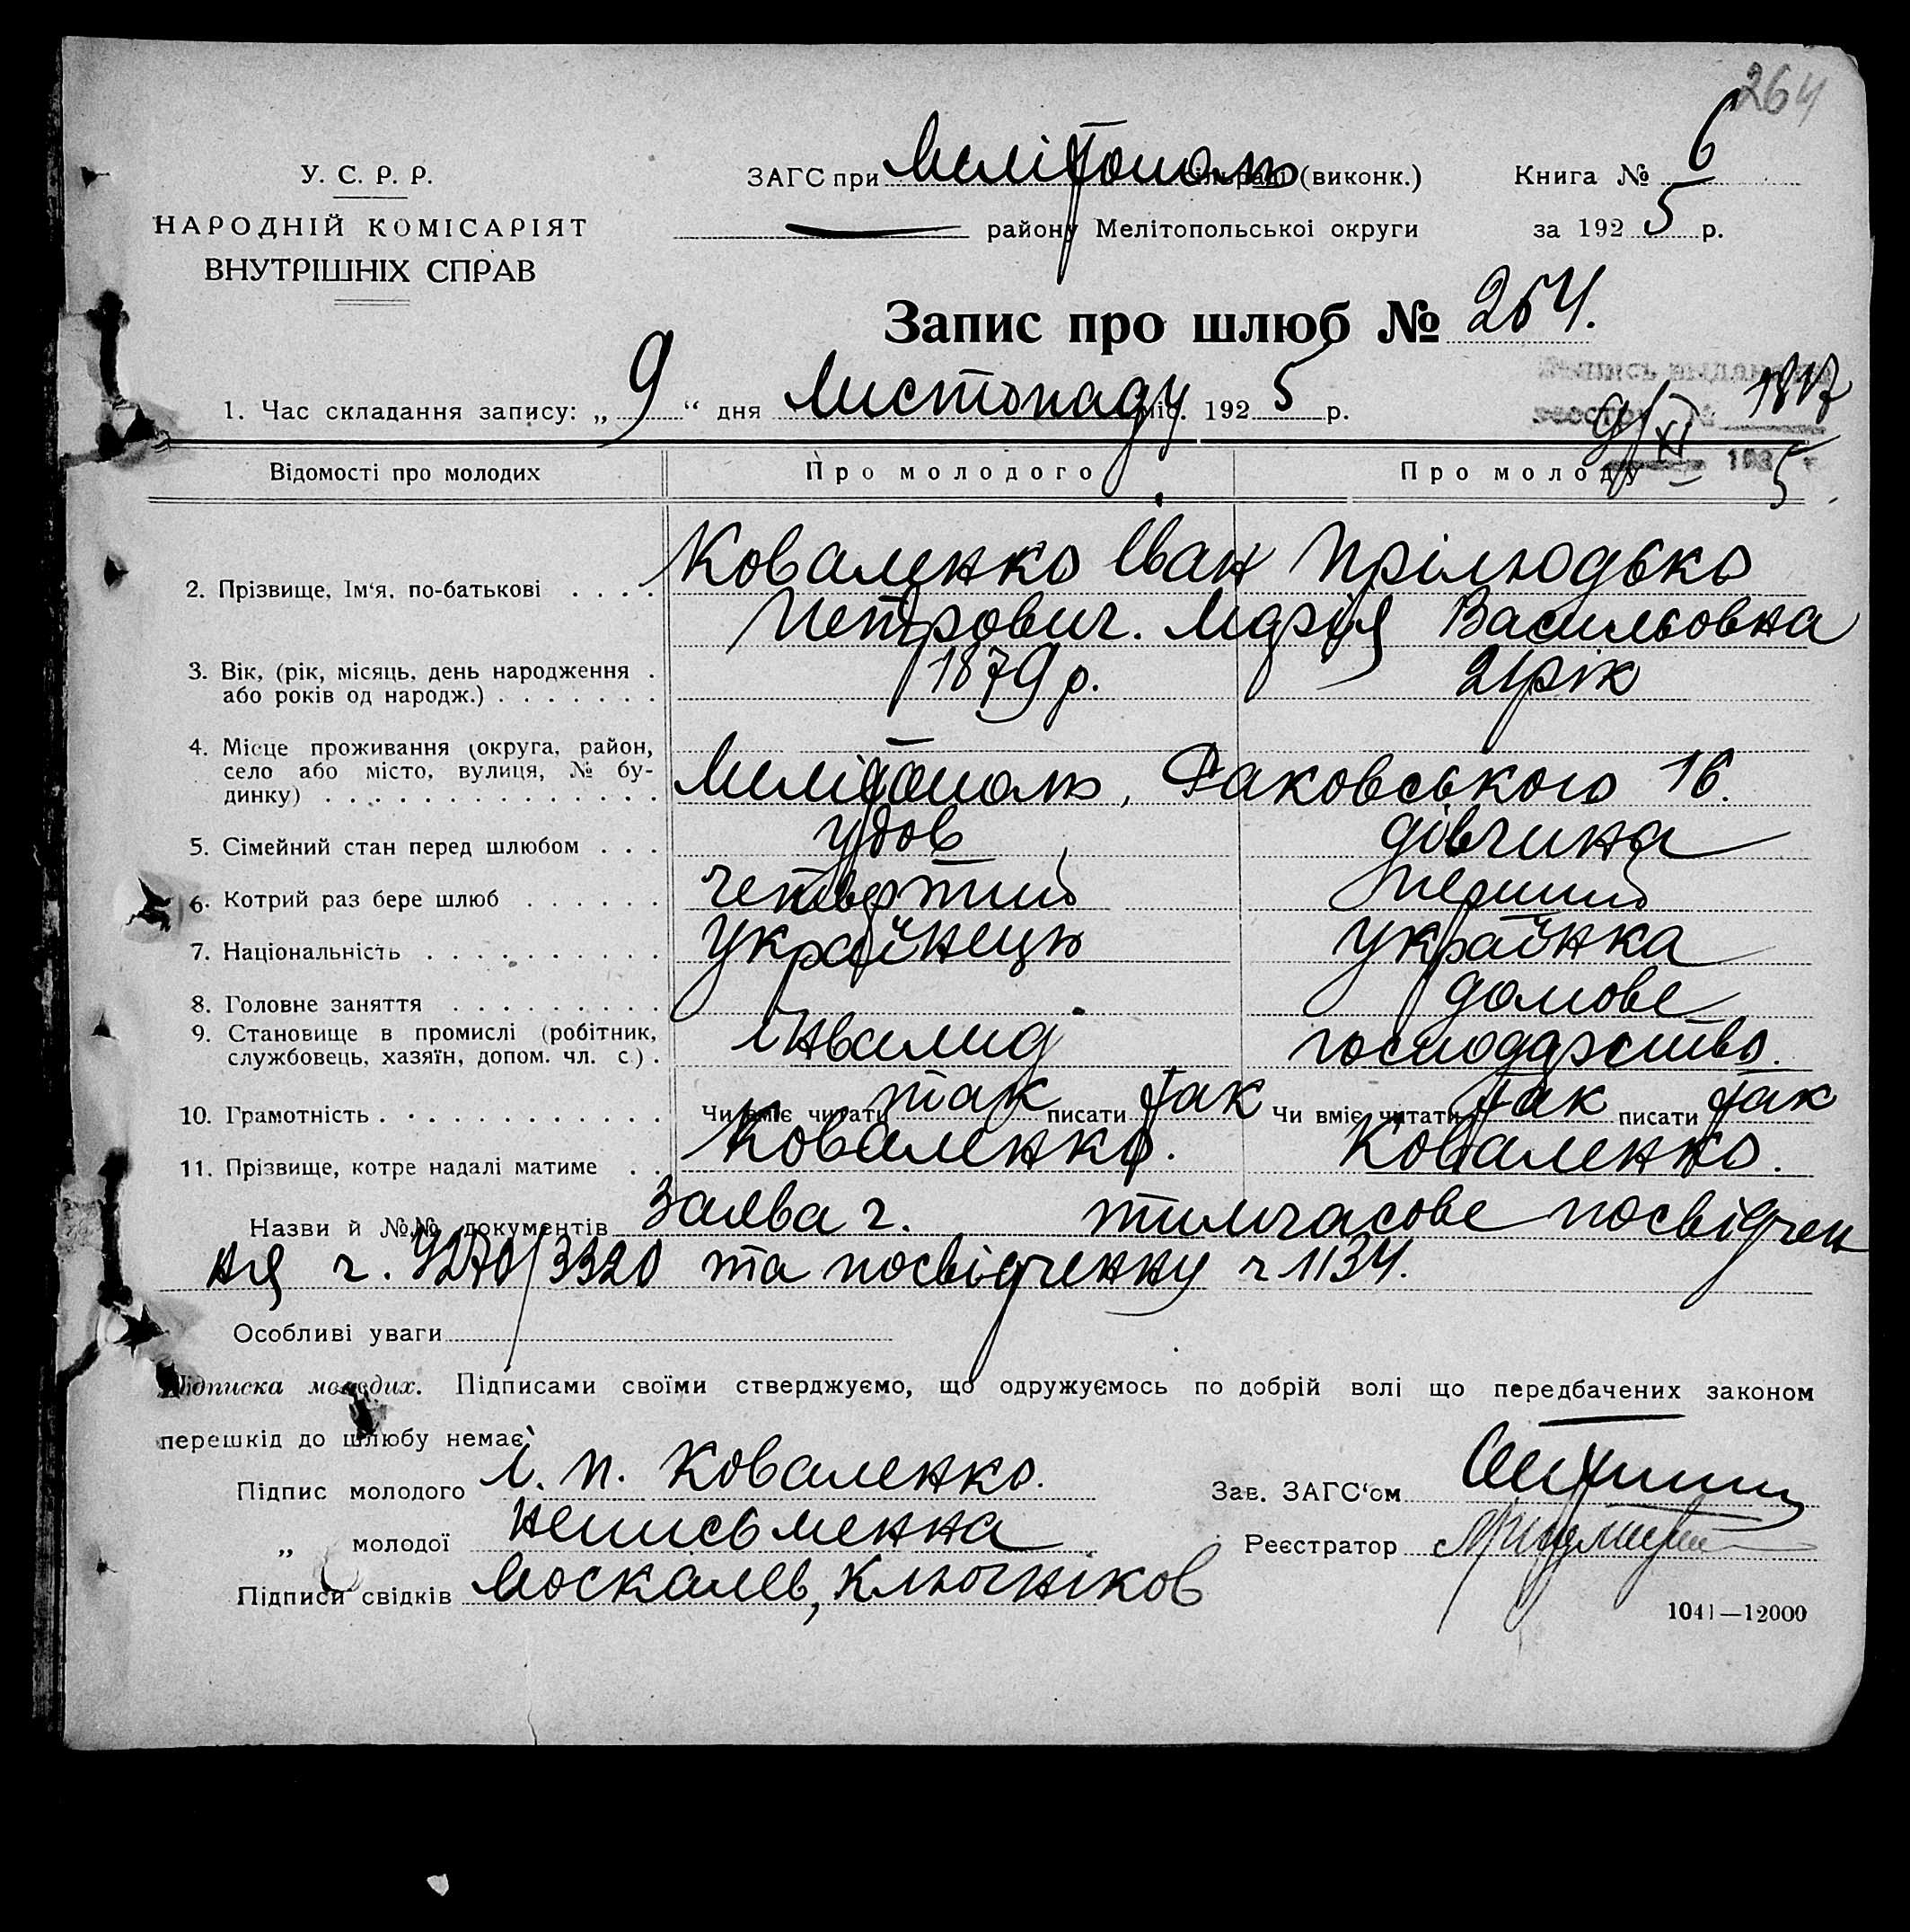 264
У. С. Р. Р.
НАРОДНІЙ КОМІСАРІЯТ
ВНУТРІШНІХ СПРАВ
ЗАГС при Мелітополь (виконк.)
району Мелітопольськоі округи
Книга № 6
за 1925 р.
Запис про шлюб № 264.
1. Час складання запису: „9“ дня Листопаду міс. 1925 р.
9/XI 5
Відомості про молодих
Про молодого
Про молоду
2. Прізвище, Ім‘я, по-батькові . . . .
Коваленко Іван
Петрович.
Прілюдько
Марія Васильовна
3. Вік, (рік, місяць, день народження .
або років од народж.) . . . . . . .
1879 р.
21 рік
4. Місце проживання (округа, район,
село або місто, вулиця, № бу-
динку) . . . . . . . . . . . . . .
Мелітополь, Раковського 16.
5. Сімейний стан перед шлюбом . . .
удов
дівчина
6. Котрий раз бере шлюб . . . . . .
четвертий
перший
7. Національність . . . . . . . . . .
українець
українка
8. Головне заняття . . . . . . . . .
9. Становище в промислі (робітник,
службовець, хазяїн, допом. чл. с.) .
інвалид
домове
господарство.
10. Грамотність . . . . . . . . . . . .
Чи вміє читати так писати так
Чи вміє читати так писати так
11. Прізвище, котре надалі матиме . .
Коваленко.
Коваленко.
Назви й №№ документів заява г. тимчасове посвідчен
ня г. 9270/3320 та посвідченну г 1134.
Особливі уваги
Підписка молодих. Підписами своїми стверджуємо, що одружуємось по добрій волі що передбачених законом
перешкід до шлюбу немає
Підпис молодого І. П. Коваленко.
„ молодої Неписьменна
Підписи свідків Москалев, Ключніков
Зав. ЗАГС‘ом
Реєстратор
1041—12000